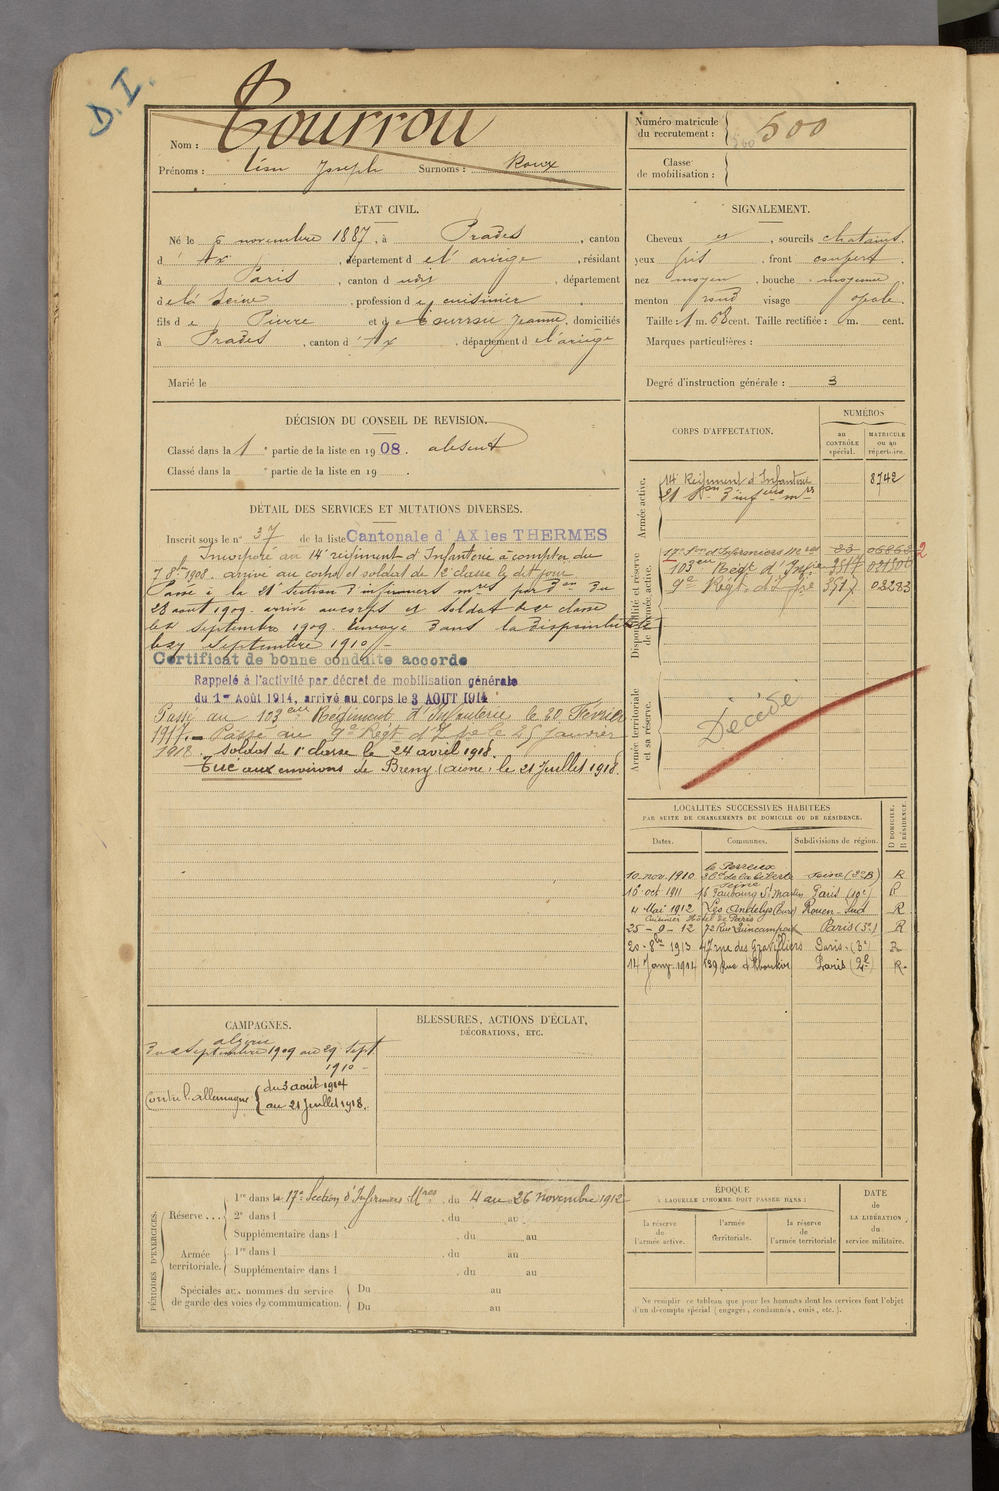 D.I.
Nom : Tourrou
Prénoms : Léon Joseph Surnoms : Roux
Numéro matricule
du recrutement : 500
Classe
de mobilisation :
ÉTAT CIVIL.
Né le 6 novembre 1887, à Prades, canton
d'Ax, département de l'ariège, résidant
à Paris, canton d udit, département
de la Seine, profession de cuisinier
fils de Pierre et de Tourrou Jeanne, domiciliés
à Prades, canton d'Ax, département de l'ariège
Marié le
SIGNALEMENT.
Cheveux et, sourcils chatains.
yeux gris, front couvert.
nez moyen, bouche moyenne
menton rond visage ovale.
Taille : 1 m. 58 cent. Taille rectifiée : m. cent.
Marques particulières :
Degré d'instruction générale : 3
DÉCISION DU CONSEIL DE REVISION.
Classé dans la 1e partie de la liste en 1908. absent
Classé dans la e partie de la liste en 19 .
DÉTAIL DES SERVICES ET MUTATIONS DIVERSES.
Inscrit sous le n° 37 de la liste Cantonale d'AX les THERMES
Incorporé au 14e régiment d'Infanterie à compter du
7 8bre 1908. arrivé au corps et soldat de 2e classe le dit jour
Passé à la 21e section d'infirmiers mres par don du
28 août 1909. arrivé au corps et soldat de 2e classe
le 2 septembre 1909. Envoyé dans la disponibilité
le 29 septembre 1910
Certificat de bonne conduite accordé
Rappelé à l'activité par décret de mobilisation générale
du 1er Août 1914, arrivé au corps le 3 AOUT 1914
Passé au 103eme Régiment d'Infanterie le 20 Février
1917. Passé au 9e Régt d'Infie le 25 Janvier
1918. Soldat de 1e classe le 24 avril 1918.
Tué aux environs de Breny (aisne) le 21 Juillet 1918.
CORPS D'AFFECTATION.
NUMÉROS
au
CONTRÔLE
spécial.
MATRICULE
ou au
répertoire.
Armée active.
14e Régiment d'Infanterie 8742
21 Son d'infiers mres
Disponibilité et réserve
de l'armée active.
17e Son d'Infirmiers Mres 33
103eme Régt d'Infie 3517
9e Régt d'Infie 3517 03283
Armée territoriale
et sa réserve.
Décédé
LOCALITÉS SUCCESSIVES HABITÉES
PAR SUITE DE CHANGEMENTS DE DOMICILE OU DE RÉSIDENCE.
Dates. Communes. Subdivisions de région.
D DOMICILE.
R RÉSIDENCE.
le Perreux
10 nov. 1910 Bd de la liberté Seine (3e B) R
Seine
16 oct 1911 16 Faubourg St Martin Paris (10e) R
4 Mai 1912 Les Andelys (Eure) Rouen-Sud R
Cuisinier Hôtel de Paris
25-9-12 72 Rue Quincampoix Paris (3e) R
20-8bre 1913 47 rue des Gravilliers Paris (3e) R
14 Janv. 1914 139 Rue d'Aboukir Paris (2e) R.
CAMPAGNES.
algérie
du 2 septembre 1909 au 29 sept
1910
Contre l'allemagne du 3 août 1914
au 21 Juillet 1918.
BLESSURES, ACTIONS D'ÉCLAT,
DÉCORATIONS, ETC.
PÉRIODES D'EXERCICES.
Réserve ...
1re dans la 17e Section d'Infirmiers Mres, du 4 au 26 novembre 1912
2e dans l , du au
Supplémentaire dans l , du au
Armée
territoriale.
1re dans l , du au
Supplémentaire dans l , du au
Spéciales aux hommes du service
de garde des voies de communication.
Du au
Du au
ÉPOQUE
À LAQUELLE L'HOMME DOIT PASSER DANS :
la réserve
de
l'armée active.
l'armée
territoriale.
la réserve
de
l'armée territoriale
DATE
de
LA LIBÉRATION
du
service militaire.
Ne remplir ce tableau que pour les hommes dont les services font l'objet
d'un décompte spécial (engagés, condamnés, omis, etc.).